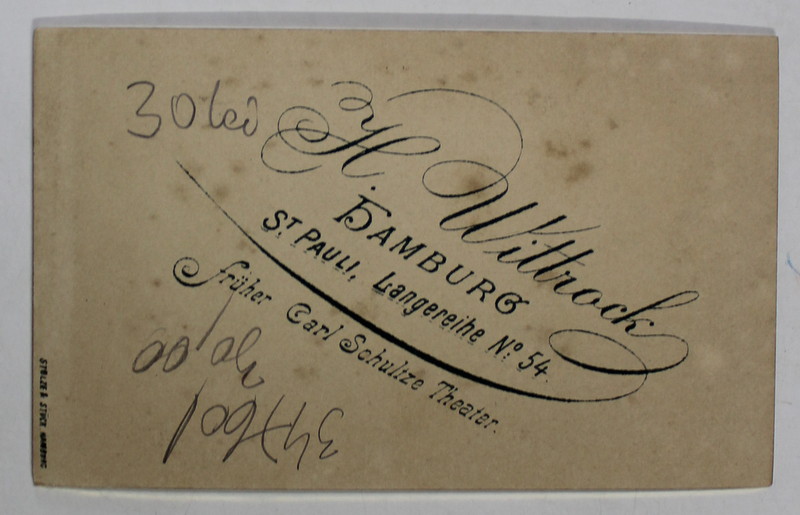 30 lei
H. Wittrock
HAMBURG
ST PAULI, Langereihe No. 54.
früher Carl Schultze Theater.
STOLZE & STUCK HAMBURG